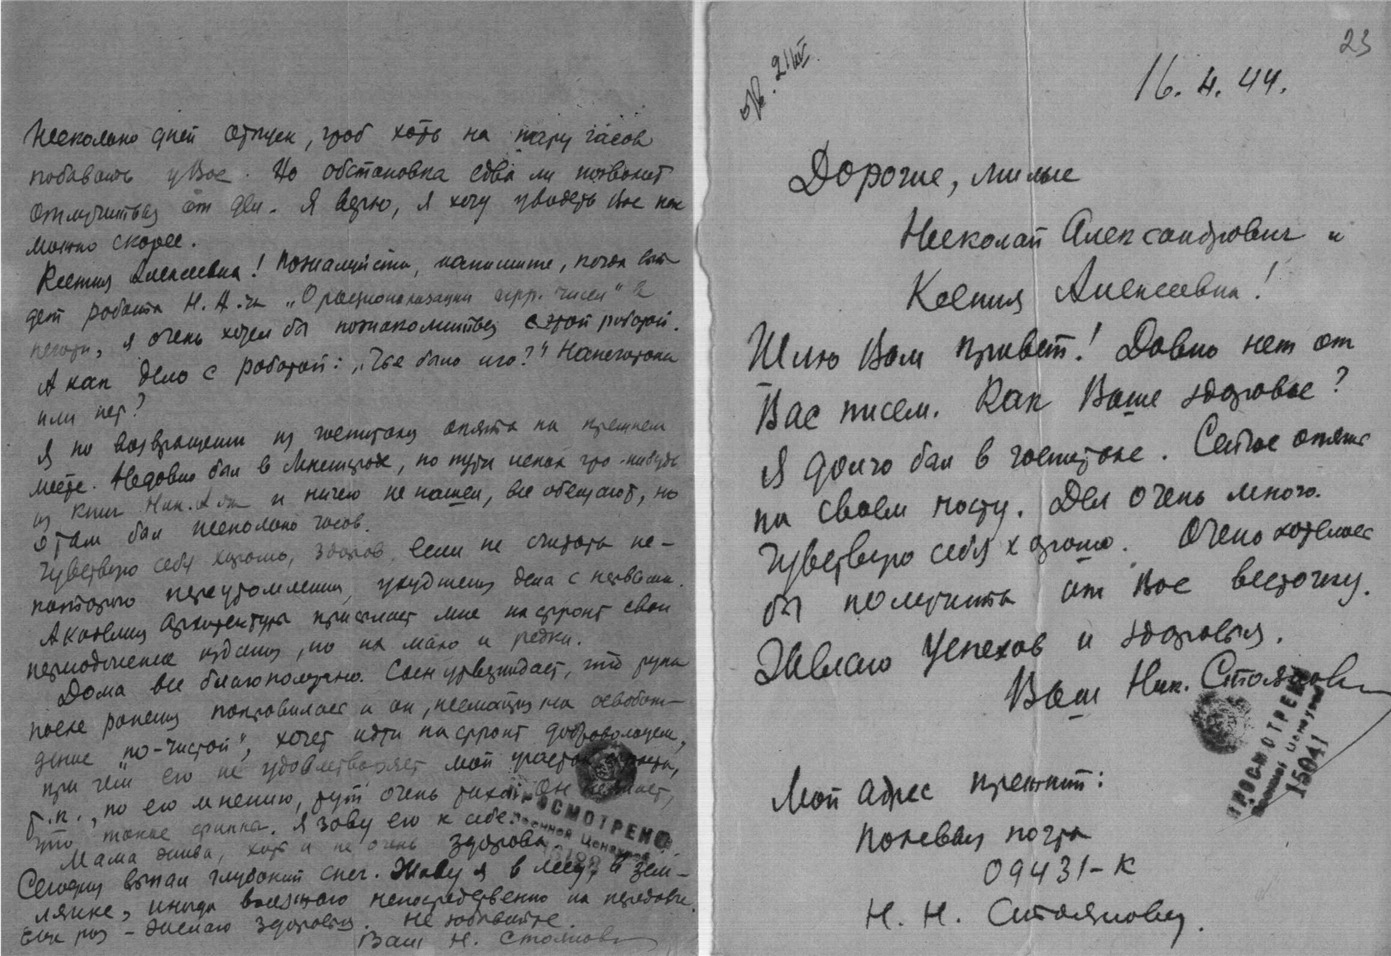 Несколько дней отпуск, чтоб хоть на пару часов
побывать у Вас. Но обстановка едва ли позволит
отлучиться от дел. Я верю, я хочу увидеть Вас как
можно скорее.
Ксения Алексеевна! Пожалуйста, напишите, когда вый-
дет работа Н. А.ча „О рационализации
я очень хотел бы познакомиться с этой работой.
А как дело с работой: „Чье было иго?" Напечатана
или нет?
Я по возвращении из госпиталя опять на прежнем
месте. Недавно был в по пути искал что-нибудь
из книг Ник. и ничего не нашел, все обещают, но
я там был несколько часов.
Чувствую себя хорошо, здоров если не считать не-
которого переутомления, ухудшения дела с нервами.
Академия Архитектуры присылает мне на фронт свои
периодические издания, но их мало и редки.
Дома все благополучно. Сын утверждает, что рука
после ранения поправилась и он, несмотря на освобож-
дение „по-чистой", хочет идти на фронт добровольцем,
при чём его не удовлетворяет мой участок
т.к., по его мнению, тут очень тихо. Он не знает,
что такое Я зову его к себе.
Мама жива, хотя и не очень здорова.
Сегодня выпал глубокий снег. Живу я в лесу, в зем-
лянке, иногда выезжаю непосредственно на передовые.
Еще раз – желаю здоровья. Не забывайте.
Ваш Н. Стоянов
ПРОСМОТРЕНО
Военной Цензурой
23
16.4.44.
Дорогие, милые
Николай Александрович и
Ксения Алексеевна!
Шлю Вам привет! Давно нет от
Вас писем. Как Ваше здоровье?
Я долго был в госпитале. Сейчас опять
на своем посту. Дел очень много.
Чувствую себя хорошо. Очень хотелось
бы получить от Вас весточку.
Желаю успехов и здоровья.
Ваш Ник. Стоянов
ПРОСМОТРЕНО
Военной Цензурой
15041
Мой адрес прежний:
Полевая почта
09431-К
Н. Н. Стоянову.